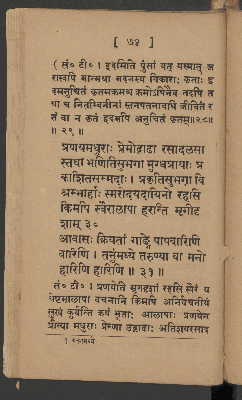 [ ७४ ]
( सं० टी० । इदमिति पुंसां यत् यस्मात् ज
रास्वपि मान्मथा मदनस्य विकाराः कृताः इ
दमनुचितं कृतमकमश्च कमोऽपिनैव तदपि त
था च नितम्बिनीनां स्तनपतनावधि जीवितं र
तं वा न कृतं इदमपि अनुचितं कृतम्॥२८॥
॥ २९ ॥
प्रणयमधुराः प्रेमोद्गाढा रसादलसा
स्तथा भणितिसुभगा मुग्धप्रायाः प्र
काशितसम्मदाः । प्रकृतिसुभगा वि
श्रम्भार्हाः स्मरोदयदायिनो रहसि
किमपि स्वैरालापा हरन्ति मृगीदृ
शाम् ३०
आवासः क्रियतां गाङ्गे पापवारिणि
वारिणि । तनुमध्ये तरुण्या वा मनो
हारिणि हारिणि ॥ ३१ ॥
सं० टी० । प्रणयेति मृगदृशां रहसि स्वैरं य
थेष्टमालापा वचनानि किमपि अनिर्वचनीयं
सुखं कुर्वन्ति कथं भूताः आलापाः प्रणयेन
प्रीत्या मधुराः प्रेम्णा उद्गाढाः अतिशयरसाद
१ स्तनमध्ये